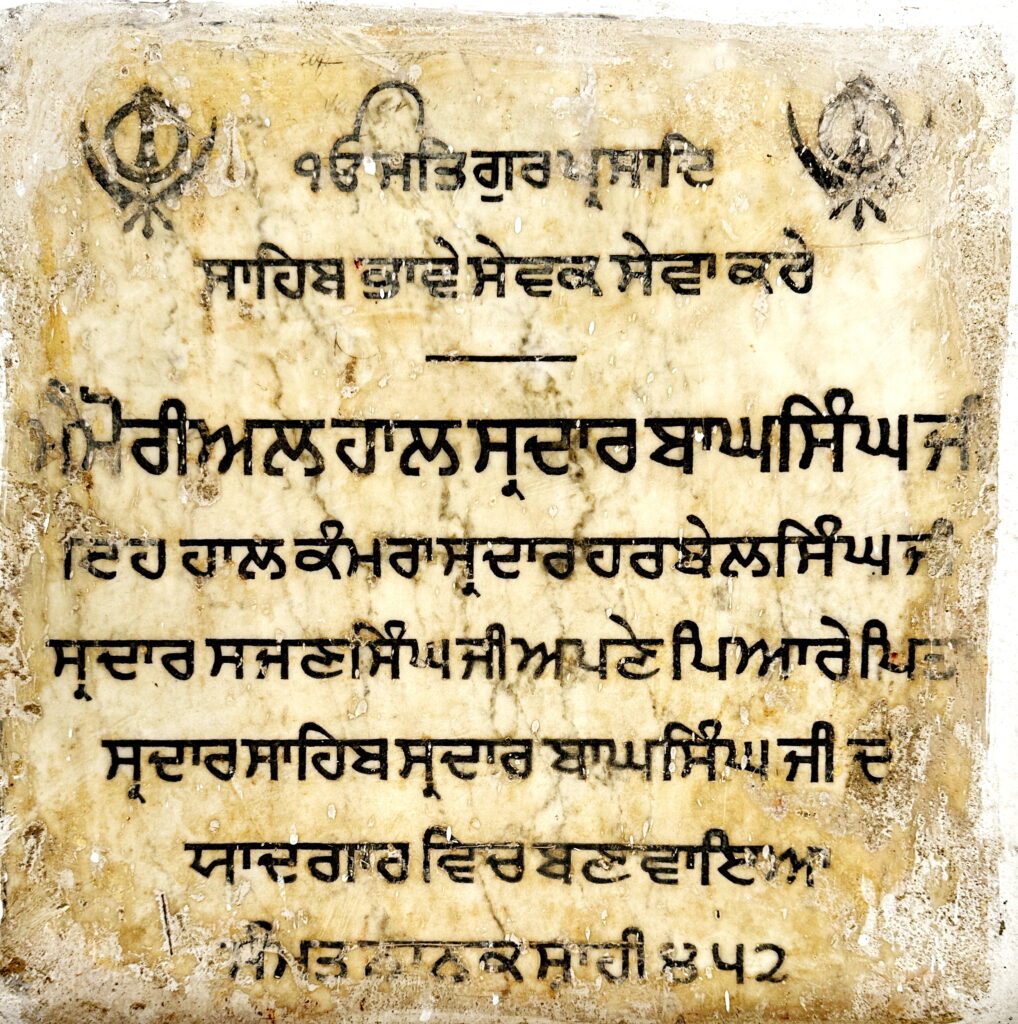 ੴ ਸਤਿਗੁਰ ਪ੍ਰਸਾਦਿ
ਸਾਹਿਬ ਭਾਵੇ ਸੇਵਕ ਸੇਵਾ ਕਰੇ
ਮੈਮੋਰੀਅਲ ਹਾਲ ਸ੍ਰਦਾਰ ਬਾਘਸਿੰਘ ਜੀ
ਇਹ ਹਾਲ ਕੰਮਰਾ ਸ੍ਰਦਾਰ ਹਰਬੇਲਸਿੰਘ ਜੀ
ਸ੍ਰਦਾਰ ਸਜਣਸਿੰਘ ਜੀ ਅਪਣੇ ਪਿਆਰੇ ਪਿਤਾ
ਸ੍ਰਦਾਰ ਸਾਹਿਬ ਸ੍ਰਦਾਰ ਬਾਘਸਿੰਘ ਜੀ ਦ
ਯਾਦਗਾਰ ਵਿਚ ਬਣਵਾਇਆ
ਸੰਮਤ ਨਾਨਕ ਸ਼ਾਹੀ ੪੫੨